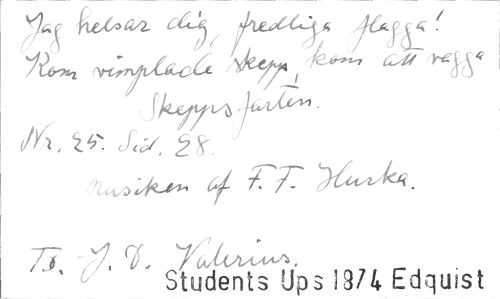 Jag helsar dig, fredliga flagga!
Kom vimplade skepp, kom att vagga
Skeppsfarten.
Nr. 25. Sid. 28.
Musiken af F. F. Hurka.
To. J. D. Valerius.
Students Ups 1874 Edquist